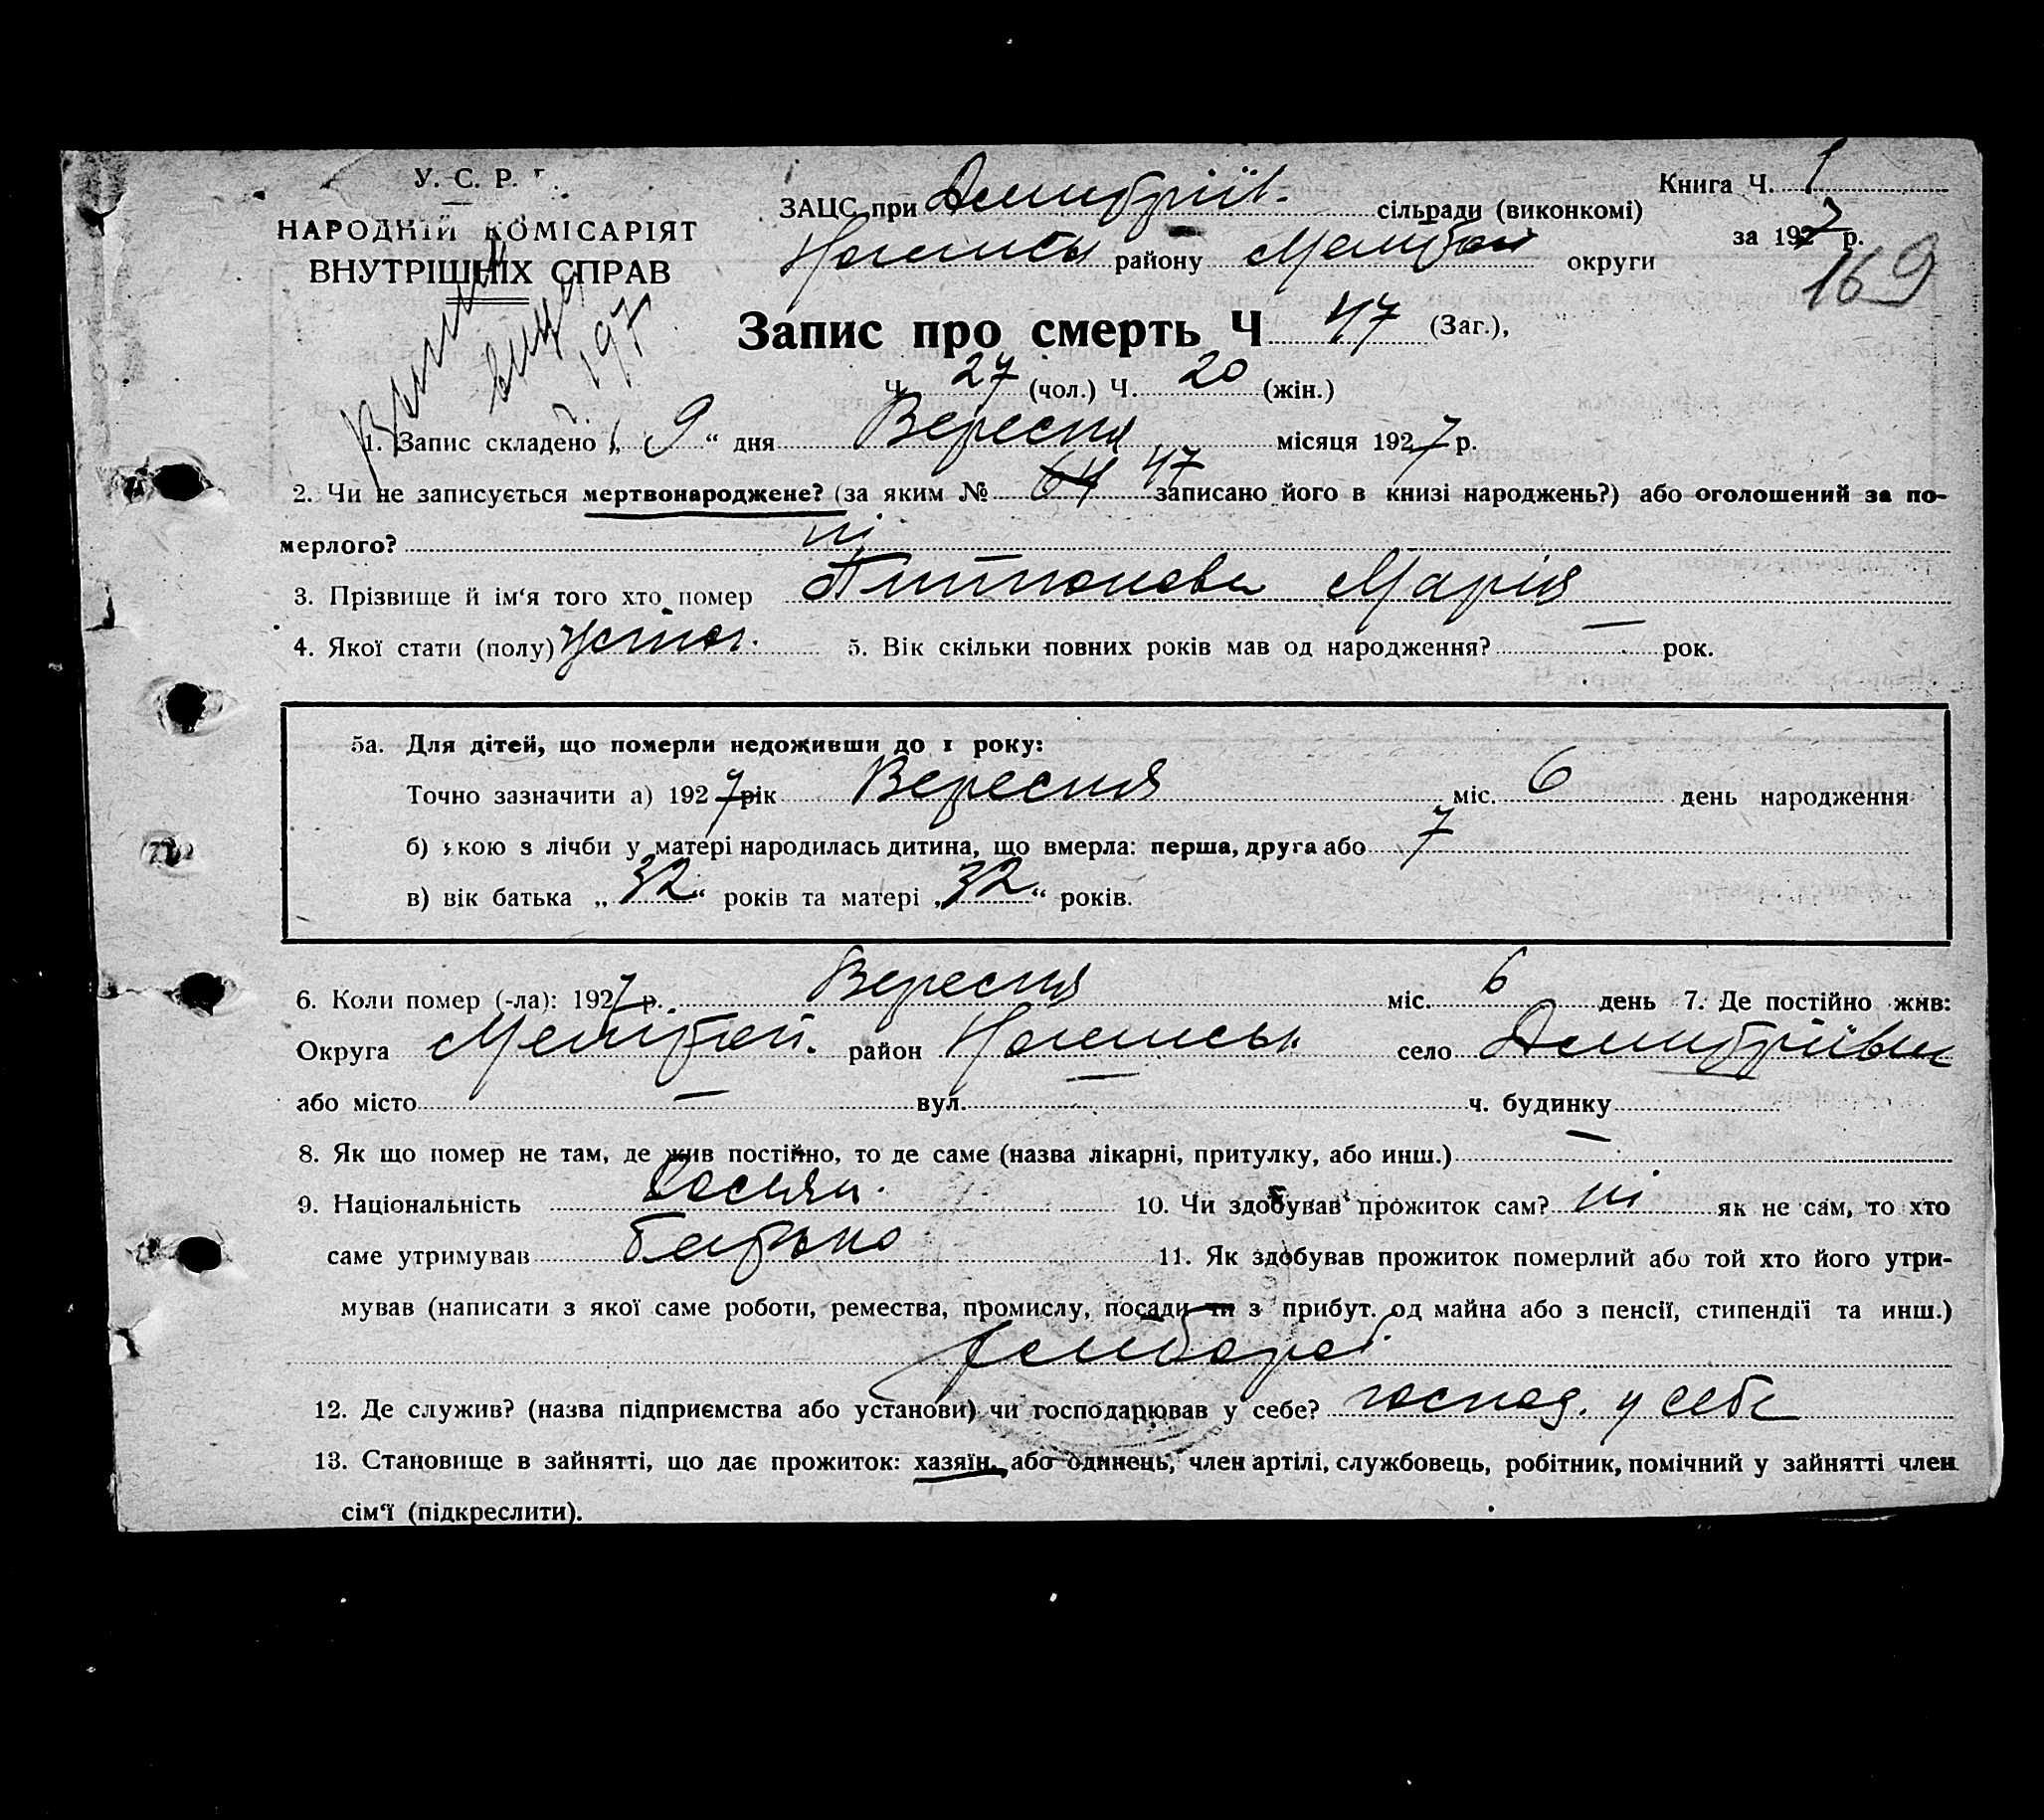 У. С. Р. Р.
НАРОДНІЙ КОМІСАРІЯТ
ВНУТРІШНІХ СПРАВ
Книга Ч. 1
ЗАЦС при Дмитріїв. сільради (виконкомі)
за 1927 р.
району округи
169
197
Запис про смерть Ч 47 (Заг.),
Ч. 27 (чол.) Ч. 20 (жін.)
1. Запис складено „ 9 “ дня Вересня місяця 1927 р.
2. Чи не записується мертвонароджене? (за яким № 64 47 записано його в книзі народжень?) або оголошений за по-
мерлого? ні
3. Прізвище й ім‘я того хто помер Марія
4. Якої стати (полу) 5. Вік скільки повних років мав од народження? — рок.
5а. Для дітей, що померли недоживши до 1 року:
Точно зазначити а) 1927 рік Вересня міс. 6 день народження
б) якою з лічби у матері народилась дитина, що вмерла: перша, друга або 7
в) вік батька „ 32 “ років та матері „ 32 “ років.
6. Коли помер (-ла): 1927 р. Вересня міс. 6 день 7. Де постійно жив:
Округа район село Дмитріївка
або місто — вул. — ч. будинку —
8. Як що помер не там, де жив постійно, то де саме (назва лікарні, притулку, або инш.) —
9. Національність 10. Чи здобував прожиток сам? ні як не сам, то хто
саме утримував батько 11. Як здобував прожиток померлий або той хто його утри-
мував (написати з якої саме роботи, ремества, промислу, посади ти з прибут. од майна або з пенсії, стипендії та инш.)
12. Де служив? (назва підприємства або установи) чи господарював у себе? господ. у себе
13. Становище в зайнятті, що дає прожиток: хазяїн, або одинець, член артілі, службовець, робітник, помічний у зайнятті член
сім‘ї (підкреслити).